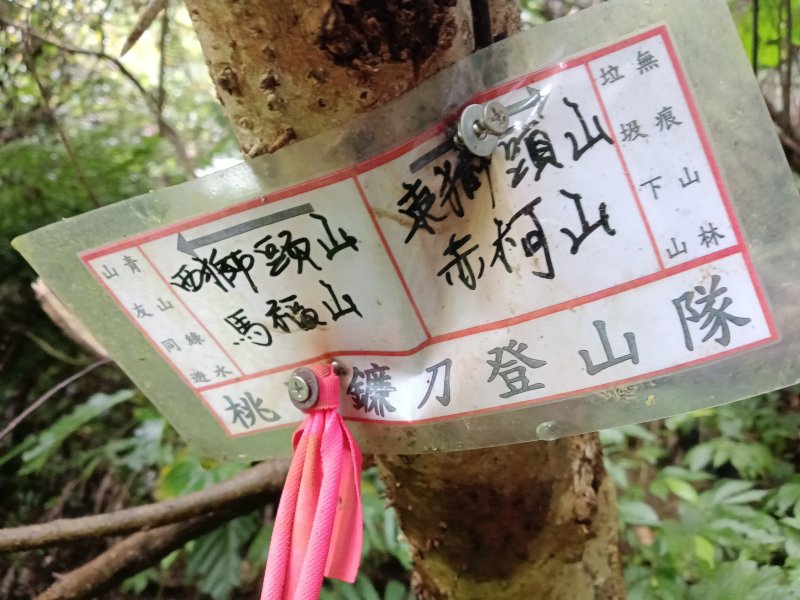 青山綠水
山友同遊
西獅頭山
馬福山
東獅頭山
赤柯山
無痕山林
垃圾下山
桃 鐮刀登山隊